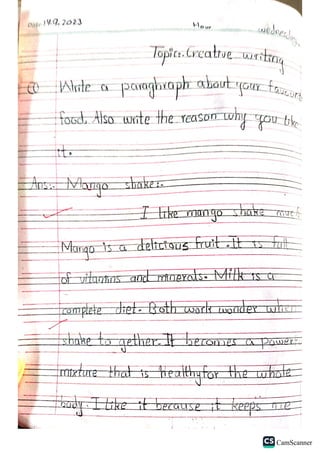 Date: 14.9.2023
Hour
wednesday
Topic:. Creative writing
Q Write a paraghraph about your favourt
food. Also write the reason why you like
it.
Ans:- Mango shake:-
I like mango shake much
Mango is a delicious fruit. It is full
of vitamins and minerals. Milk is a
complete diet. Both work wonder when
shake to gether. It becomes a power
mixture that is healthy for the whole
body. I like it because it keeps me
CS CamScanner